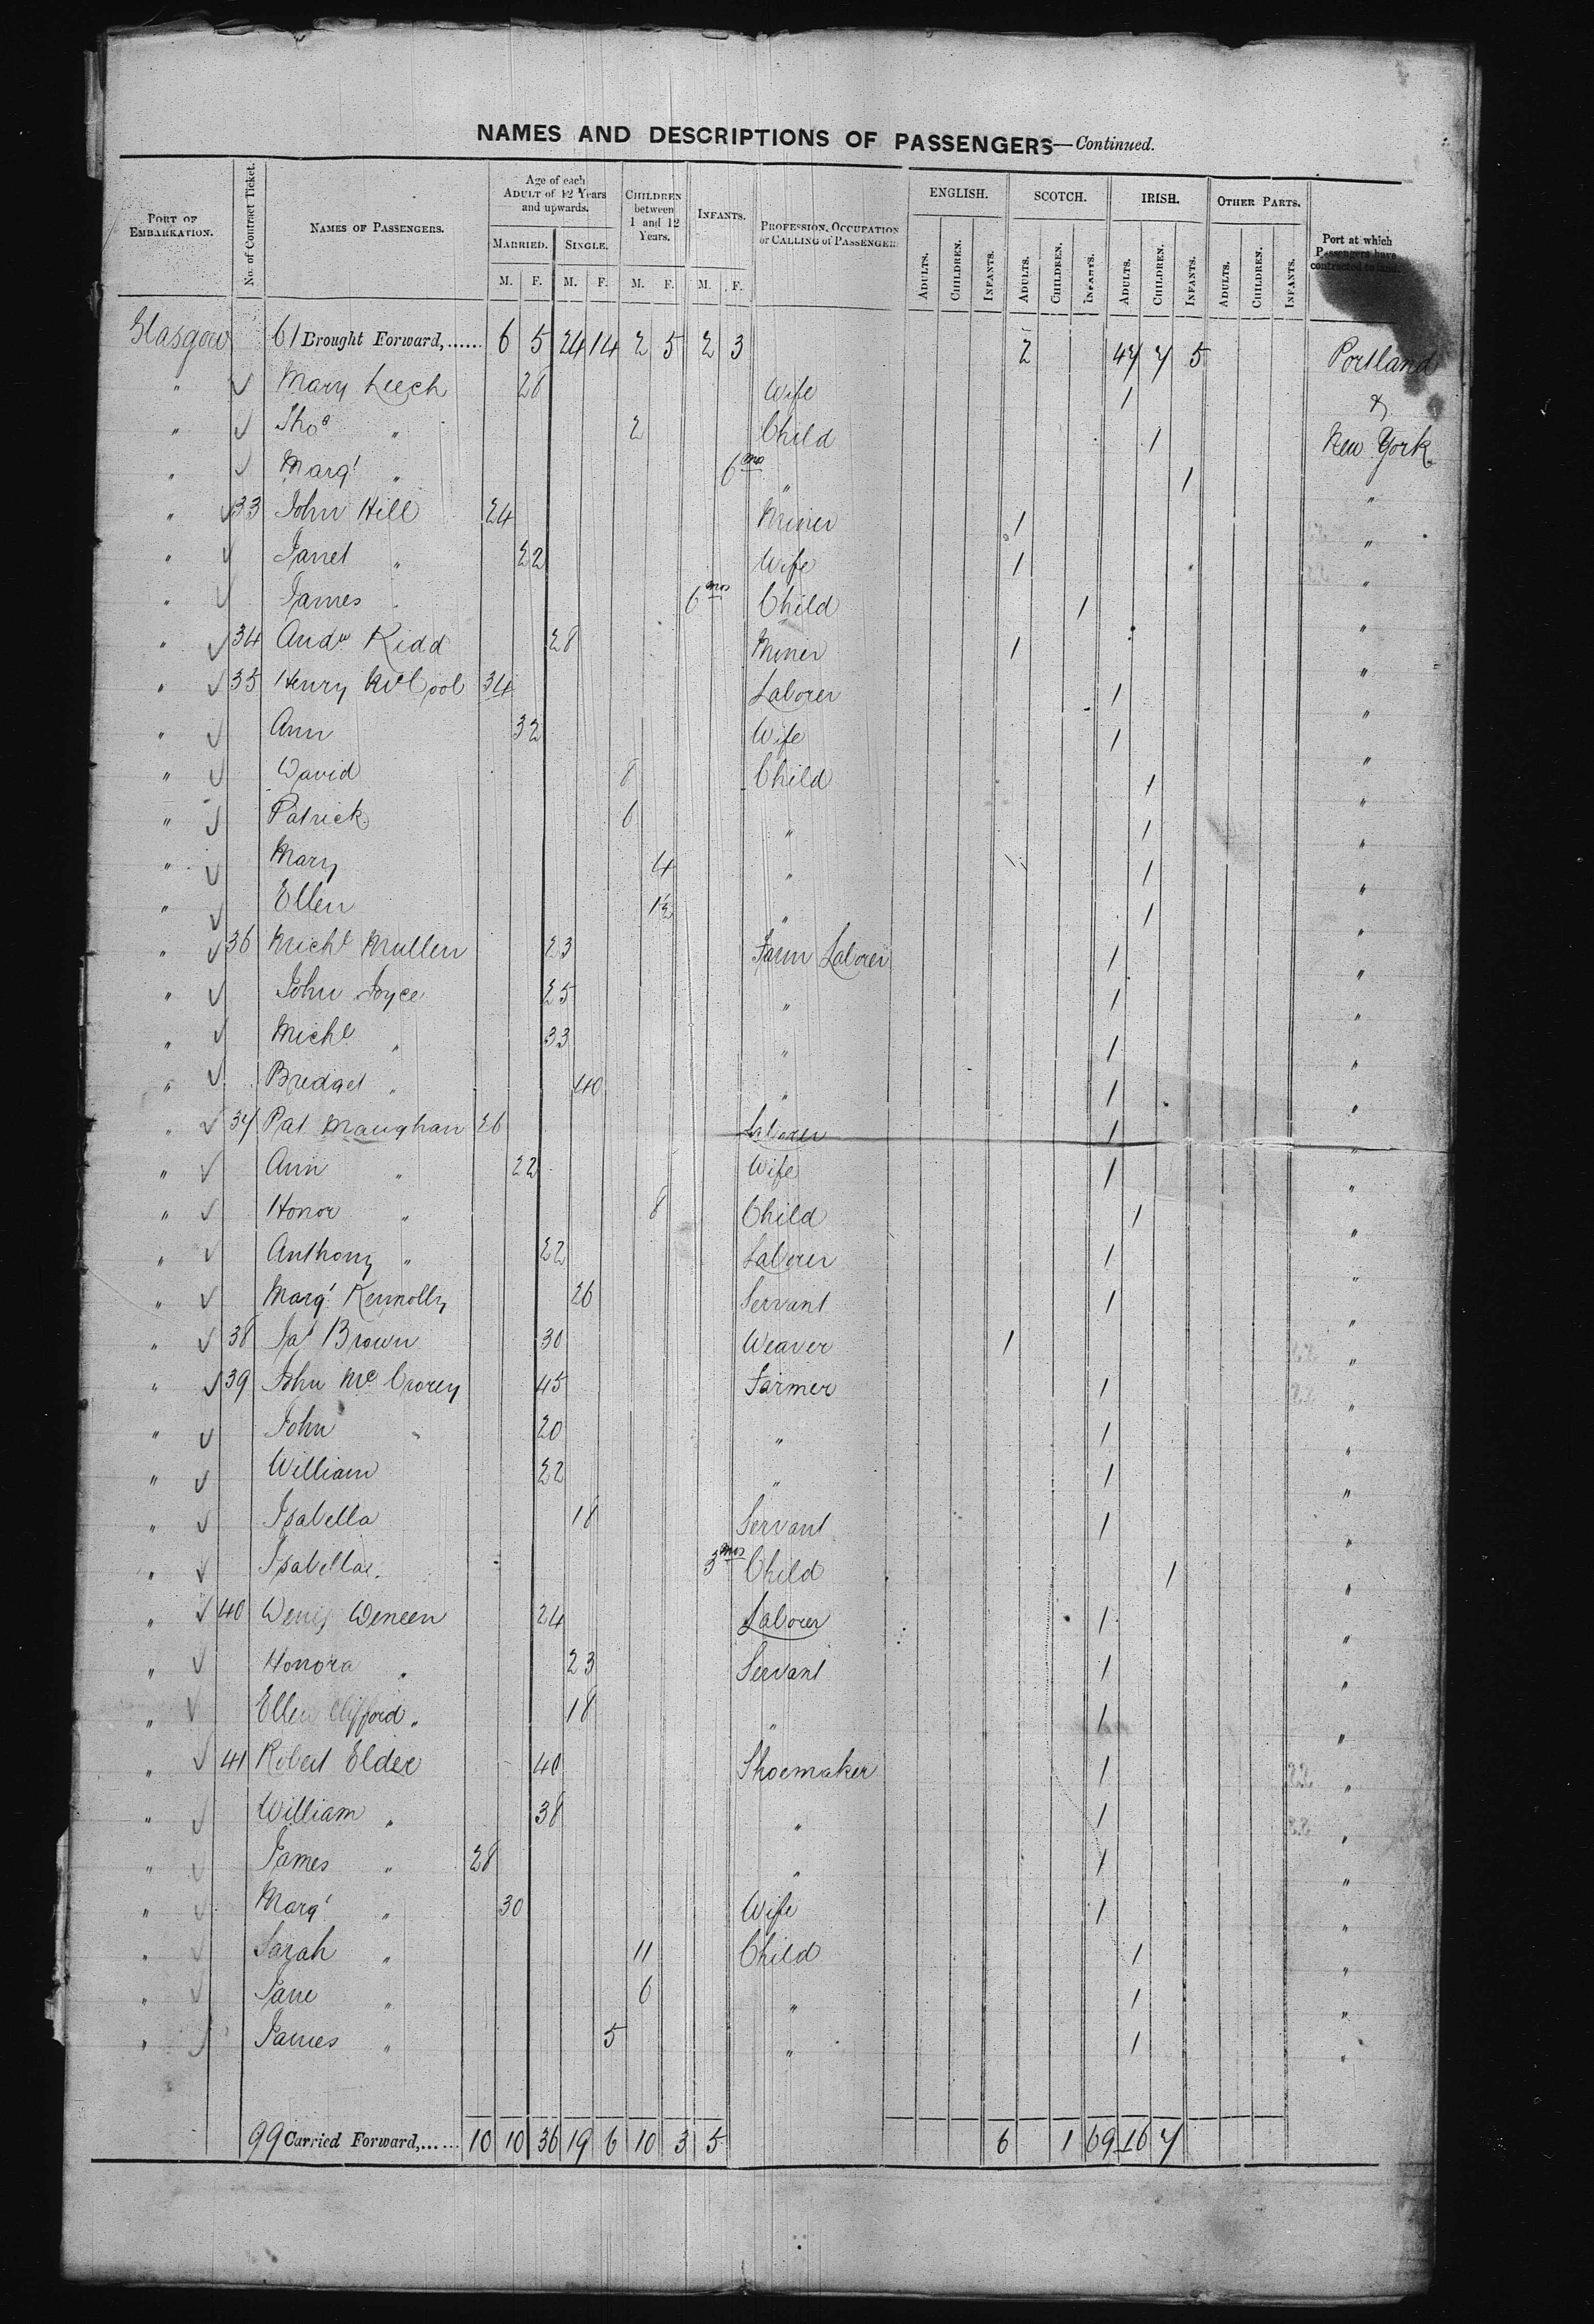 NAMES AND DESCRIPTIONS OF PASSENGERS—Continued.
PORT OF EMBARKATION. No. of Contract Ticket. NAMES OF PASSENGERS. Age of each ADULT of 12 Years and upwards. CHILDREN between 1 and 12 Years. INFANTS. PROFESSION, OCCUPATION or CALLING of PASSENGER. ENGLISH. SCOTCH. IRISH. OTHER PARTS. Port at which Passengers have contracted to land.
MARRIED. SINGLE.
M. F. M. F. M. F. M. F. ADULTS. CHILDREN. INFANTS. ADULTS. CHILDREN. INFANTS. ADULTS. CHILDREN. INFANTS. ADULTS. CHILDREN. INFANTS.
Glasgow 61 Brought Forward,...... 6 5 24 14 2 5 2 3 2 47 7 5 Portland
" ✓ Mary Leech 28 Wife 1 &
" ✓ Thos " 2 Child 1 New York
" ✓ Margt " 6 mo " 1 "
" ✓ 33 John Hill 24 Miner 1 "
" ✓ Janet " 22 Wife 1 "
" ✓ James " 6 mos Child 1 "
" ✓ 34 Andw Kidd 28 Miner 1 "
" ✓ 35 Henry McCool 34 Laborer 1 "
" ✓ Ann 32 Wife 1 "
" ✓ David 8 Child 1 "
" ✓ Patrick 6 " 1 "
" ✓ Mary 4 " 1 "
" ✓ Ellen 1½ " 1 "
" ✓ 36 Michl Mullen 23 Farm Laborer 1 "
" ✓ John Joyce 25 " 1 "
" ✓ Michl " 33 " 1 "
" ✓ Bridget " 40 " 1 "
" ✓ 37 Pat Maughan 26 Laborer 1 "
" ✓ Ann " 22 Wife 1 "
" ✓ Honor " 8 Child 1 "
" ✓ Anthony " 22 Laborer 1 "
" ✓ Margt Kennolly 26 Servant 1 "
" ✓ 38 Jas Brown 30 Weaver 1 "
" ✓ 39 John McCrorey 45 Farmer 1 "
" ✓ John " 20 " 1 "
" ✓ William 22 " 1 "
" ✓ Isabella 18 Servant 1 "
" ✓ Isabella 3 mos Child 1 "
" ✓ 40 Denis Deneen 24 Laborer 1 "
" ✓ Honora " 23 Servant 1 "
" ✓ Ellen Clifford " 18 " 1 "
" ✓ 41 Robert Elder 40 Shoemaker 1 "
" ✓ William " 38 " 1 "
" ✓ James " 28 " 1 "
" ✓ Margt " 30 Wife 1 "
" ✓ Sarah " 11 Child 1 "
" ✓ Jane " 6 " 1 "
" ✓ James " 5 " 1 "
99 Carried Forward,...... 10 10 36 19 6 10 3 5 6 1 69 16 7